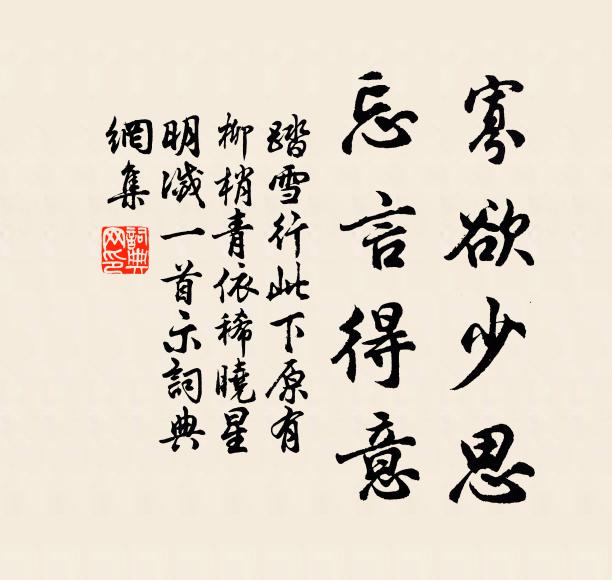 寡欲少思
忘言得意
踏雪行此下原有
柳梢青依稀曉星
明滅一首示詞典
網集
詞典
网印